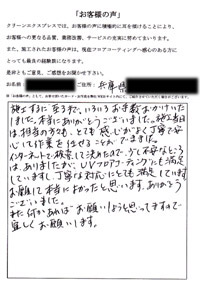 「お客様の声」
クリーンエキスプレスでは、お客様の声に積極的に耳を傾けることにより、
お客様への更なる品質、業務改善、サービスの充実に努めてまいります。
また、施工されたお客様の声は、現在フロアコーティングへ感心のある方に
とっても最良の経験談となります。
是非ともご意見、ご感想をお聞かせ下さい。
ご住所：兵庫県
施工するに至るまで、いろいろお手数おかけいた
しました。本当にありがとうございました。施工当日
は、担当の方も、とても感じがよく丁寧で安
心して作業を任せることができました。
インターネットで検索して決めたので、少し不安なところ
はありましたが、UVフロアコーティングにも満足
していますし、丁寧な対応にとても満足しています。
お願いして本当によかったと思います。ありがとう
ございました。
また何かあればお願いしようと思ってますので
宜しくお願いします。